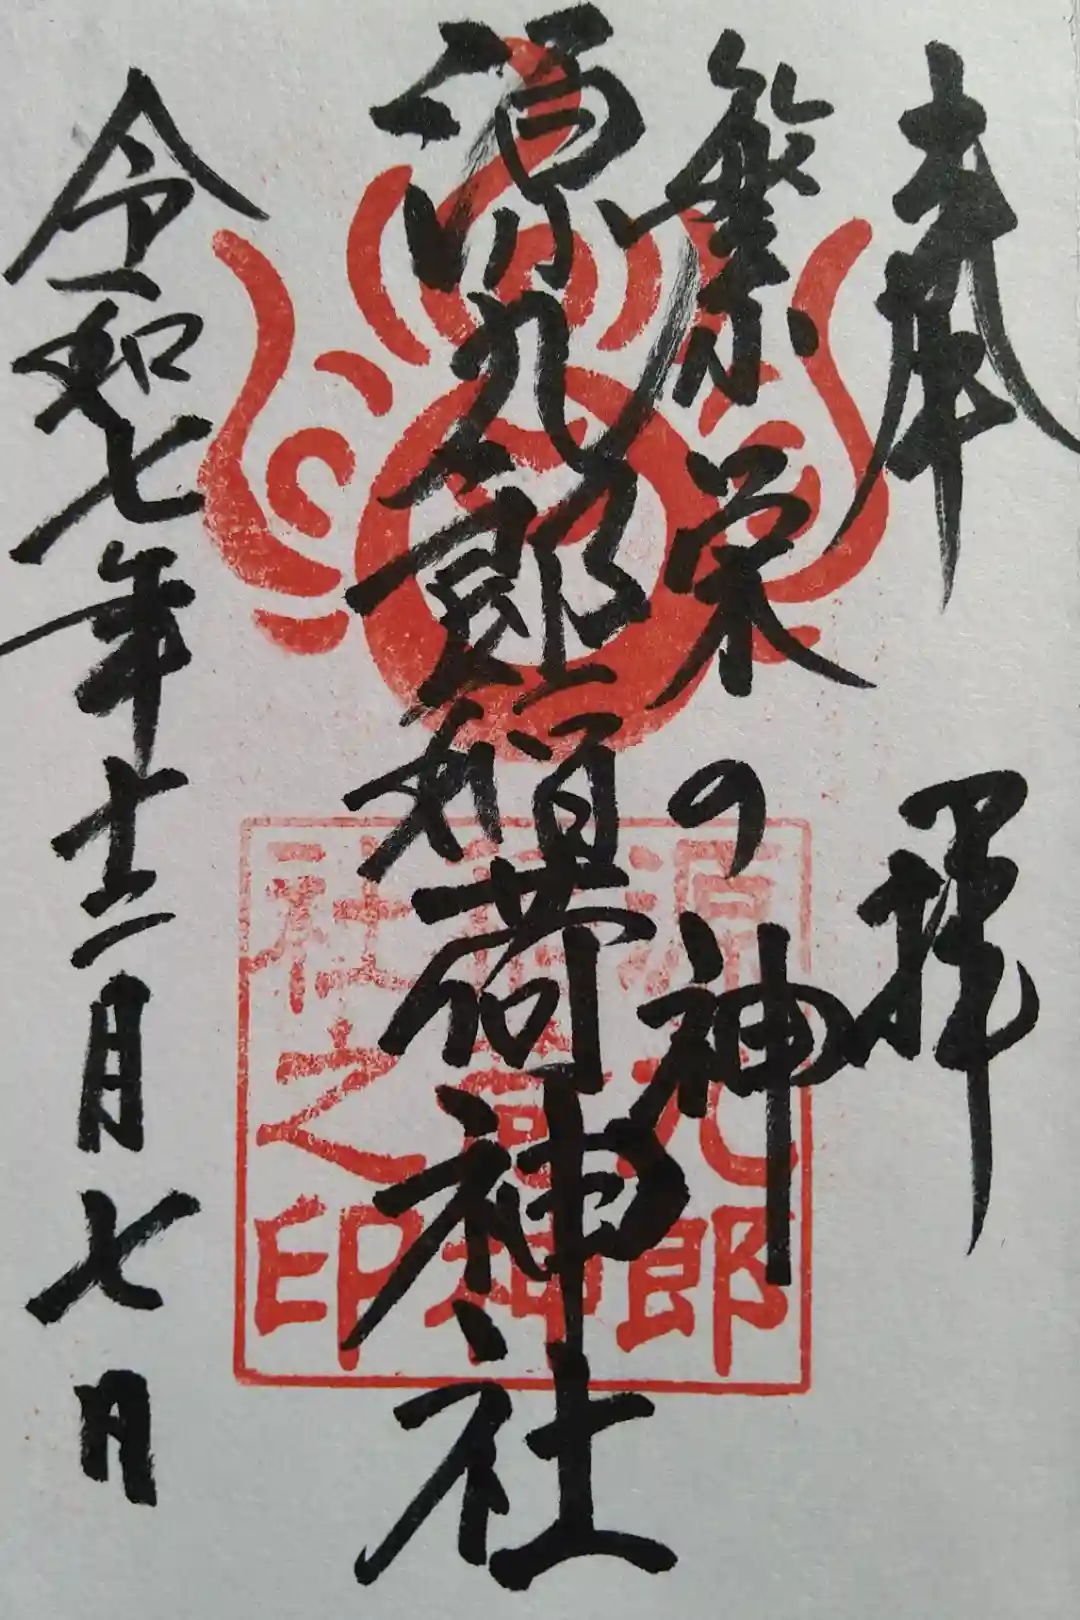 奉拝
繁栄の神
源九郎稲荷神社
令和七年十二月七日
源九郎
稲荷神
社之印